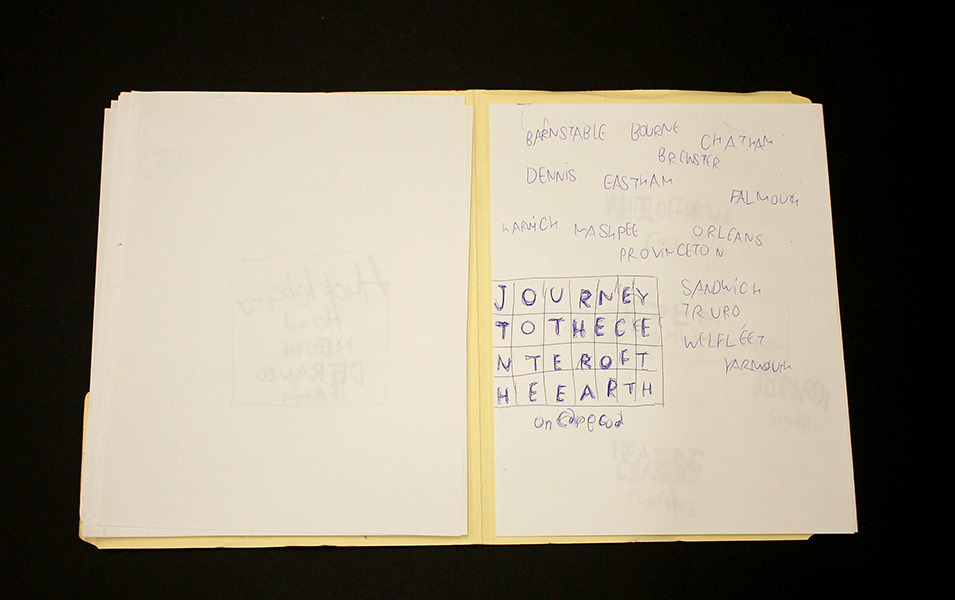 BARNSTABLE BOURNE CHATHAM
BREWSTER
DENNIS EASTHAM
FALMOUTH
HARWICH MASHPEE ORLEANS
PROVINCETON
SANDWICH
TRURO
WELFLEET
YARMOUTH
JOURNEY
TOTHECE
NTEROFT
HEEARTH
on Cape Cod